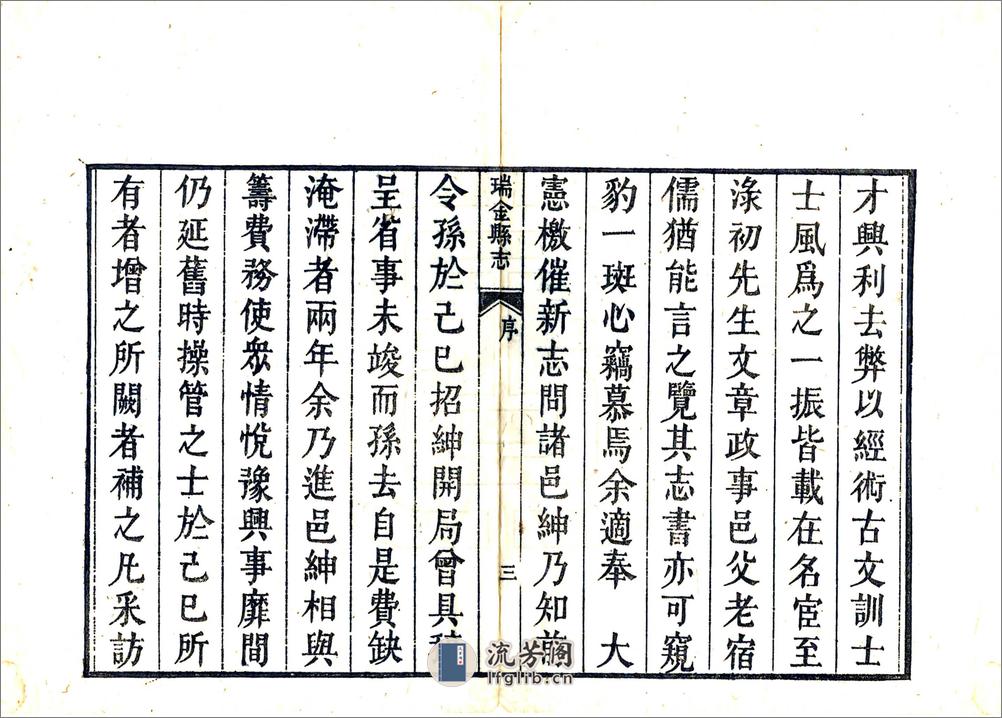 才興利去弊以經術古文訓士
士風爲之一振皆載在名宦至
淥初先生文章政事邑父老宿
儒猶能言之覽其志書亦可窺
豹一斑心竊慕焉余適奉　大
憲檄催新志問諸邑紳乃知前
瑞金縣志　序　三
令孫於己巳招紳開局曾具稿
呈省事未竣而孫去自是費缺
淹滯者兩年余乃進邑紳相與
籌費務使衆情悅豫興事靡間
仍延舊時操管之士於己巳所
有者增之所闕者補之凡采訪
流芳閣
lfglib.cn